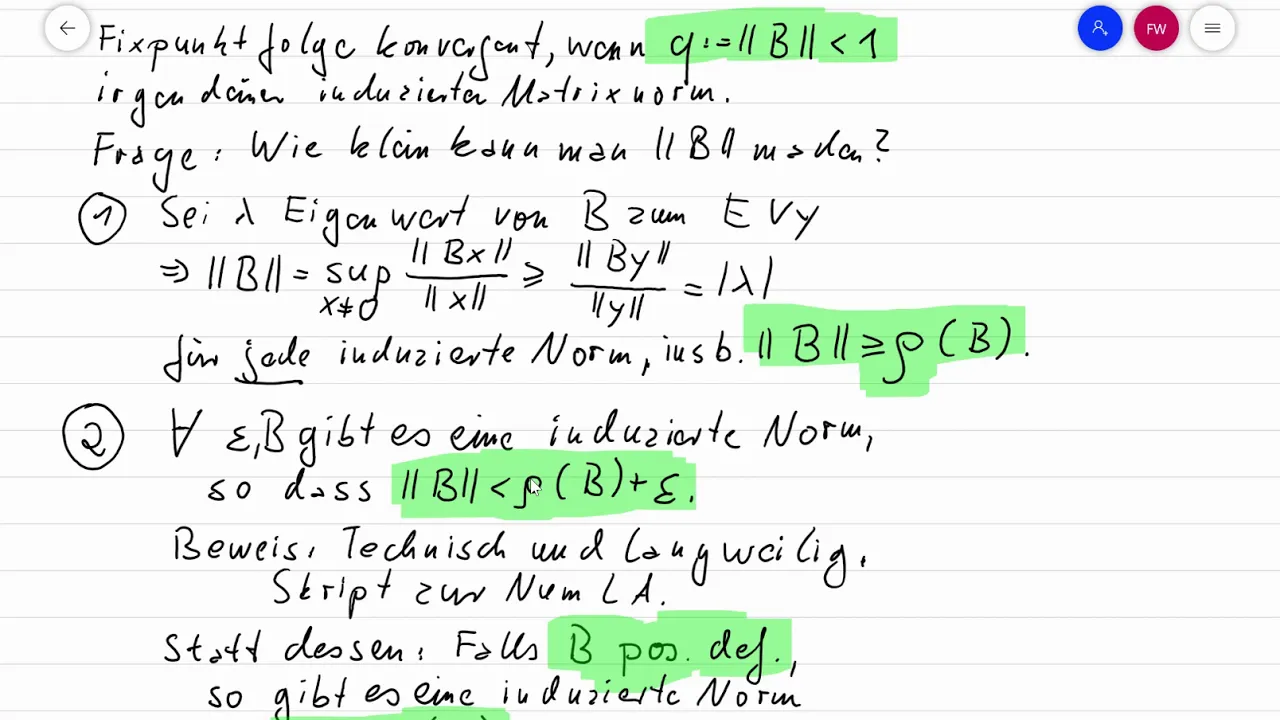 Fixpunktfolge konvergent, wenn q := ||B|| < 1
FW
irgendeiner induzierten Matrixnorm.
Frage: Wie klein kann man ||B|| machen?
① Sei λ Eigenwert von B zum EV y
⇒ ||B|| = sup_{x≠0} ||Bx|| / ||x|| ≥ ||By|| / ||y|| = |λ|
für jede induzierte Norm, insb. ||B|| ≥ ρ(B).
② ∀ ε, B gibt es eine induzierte Norm,
so dass ||B|| < ρ(B) + ε.
Beweis: Technisch und langweilig.
Skript zur Num LA.
Statt dessen: Falls B pos. def.,
so gibt es eine induzierte Norm